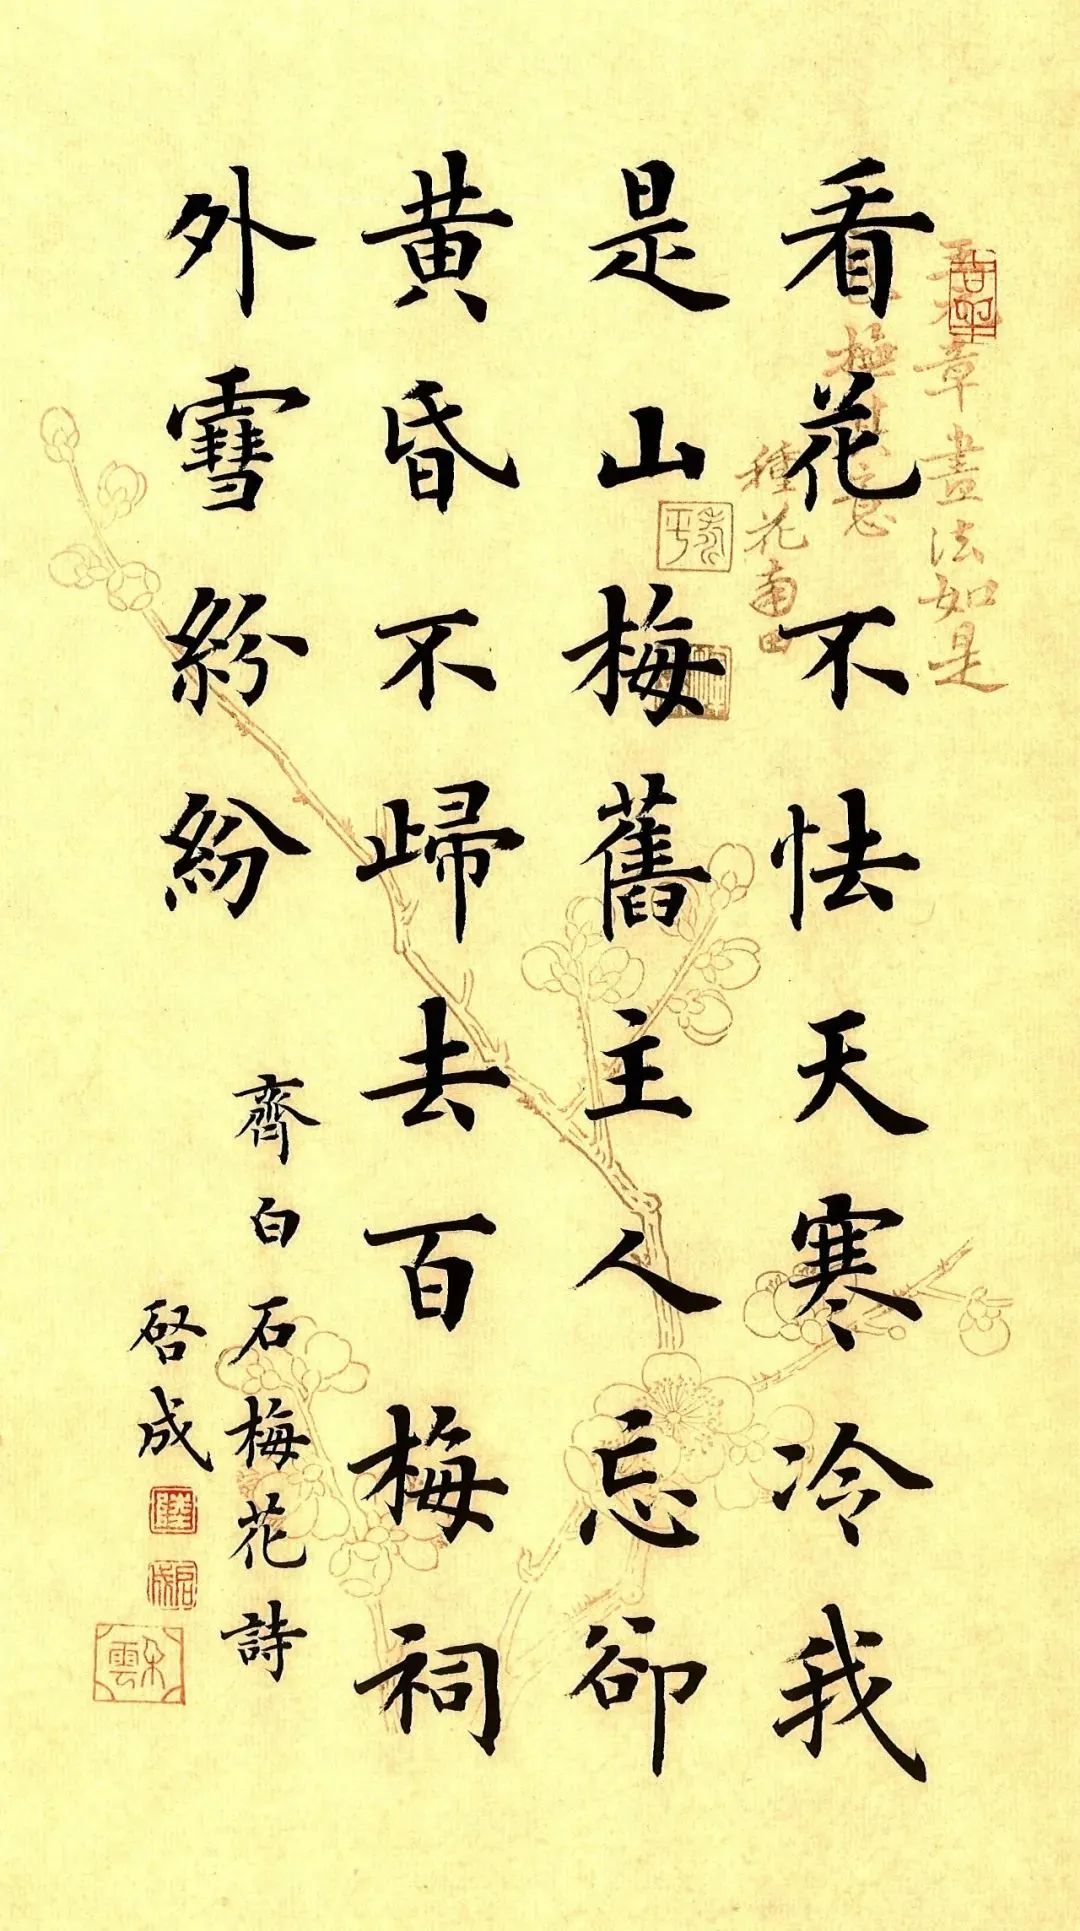 看花不怯天寒冷我
是山梅舊主人忘卻
黄昏不歸去百梅祠
外雪紛紛
齊白石梅花詩
啓成
章畫法如是
種花南田